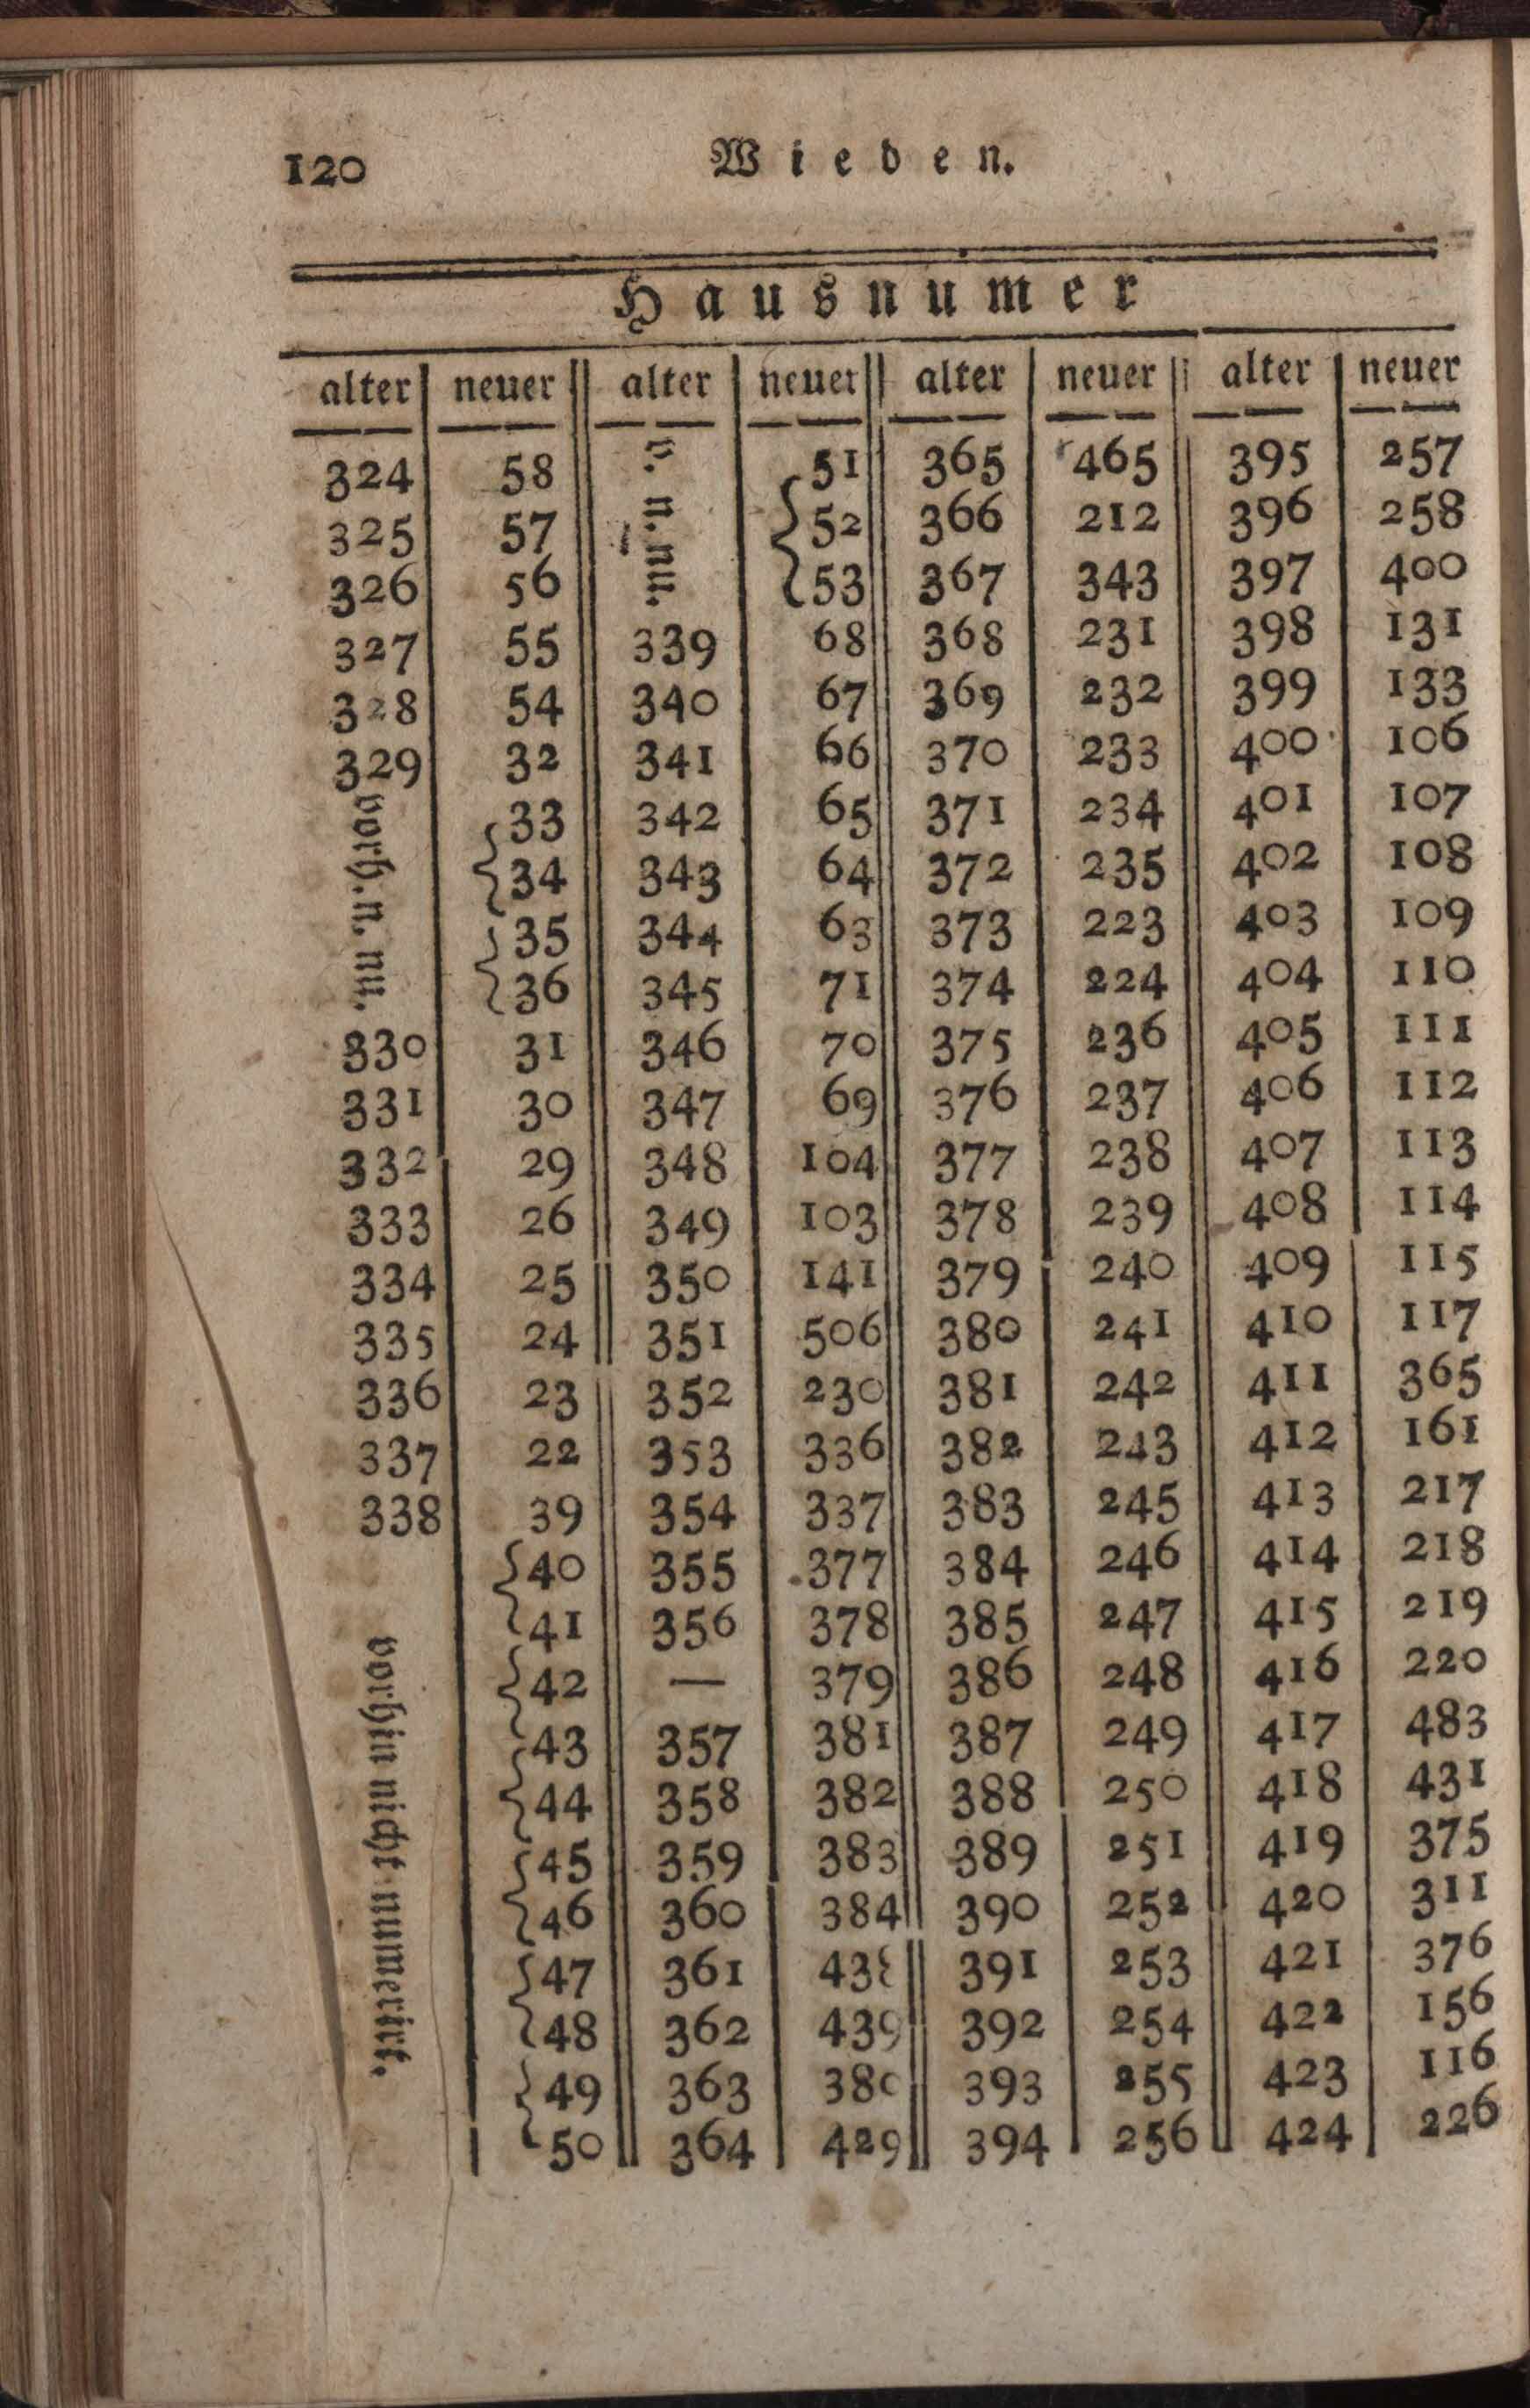 120 Wieden.
Hausnumer
alter neuer alter neuer alter neuer alter neuer
324 58 v. n. nu. 51 365 465 395 257
325 57 52 366 212 396 258
326 56 53 367 343 397 400
327 55 339 68 368 231 398 131
328 54 340 67 369 232 399 133
329 32 341 66 370 233 400 106
vorh. n. nu. 33 342 65 371 234 401 107
34 343 64 372 235 402 108
35 344 63 373 223 403 109
36 345 71 374 224 404 110
330 31 346 70 375 236 405 111
331 30 347 69 376 237 406 112
332 29 348 104 377 238 407 113
333 26 349 103 378 239 408 114
334 25 350 141 379 240 409 115
335 24 351 506 380 241 410 117
336 23 352 230 381 242 411 365
337 22 353 336 382 243 412 161
338 39 354 337 383 245 413 217
vorhin nicht numerirt. 40 355 377 384 246 414 218
41 356 378 385 247 415 219
42 — 379 386 248 416 220
43 357 381 387 249 417 483
44 358 382 388 250 418 431
45 359 383 389 251 419 375
46 360 384 390 252 420 311
47 361 438 391 253 421 376
48 362 439 392 254 422 156
49 363 380 393 255 423 116
50 364 429 394 256 424 226